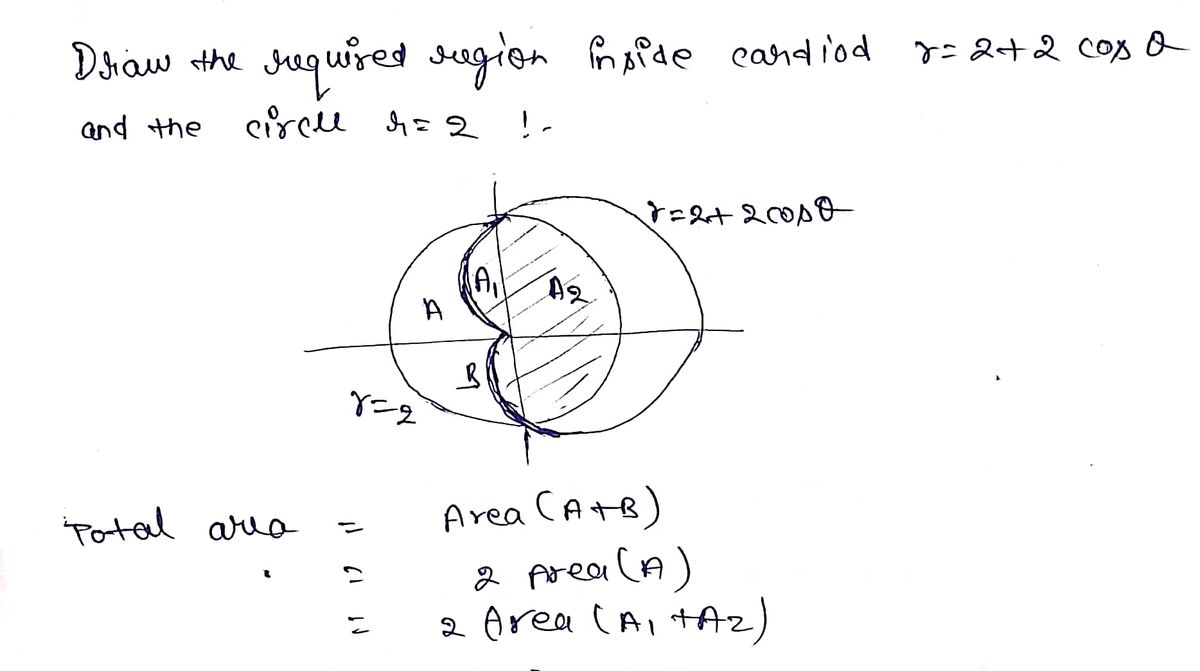 Draw the required region inside cardiod r = 2+2 cos θ
and the circle r = 2 !-
r = 2+ 2 cos θ
A₁
A₂
A
B
r = 2
Total area = Area (A+B)
= 2 Area (A)
= 2 Area (A₁ + A₂)